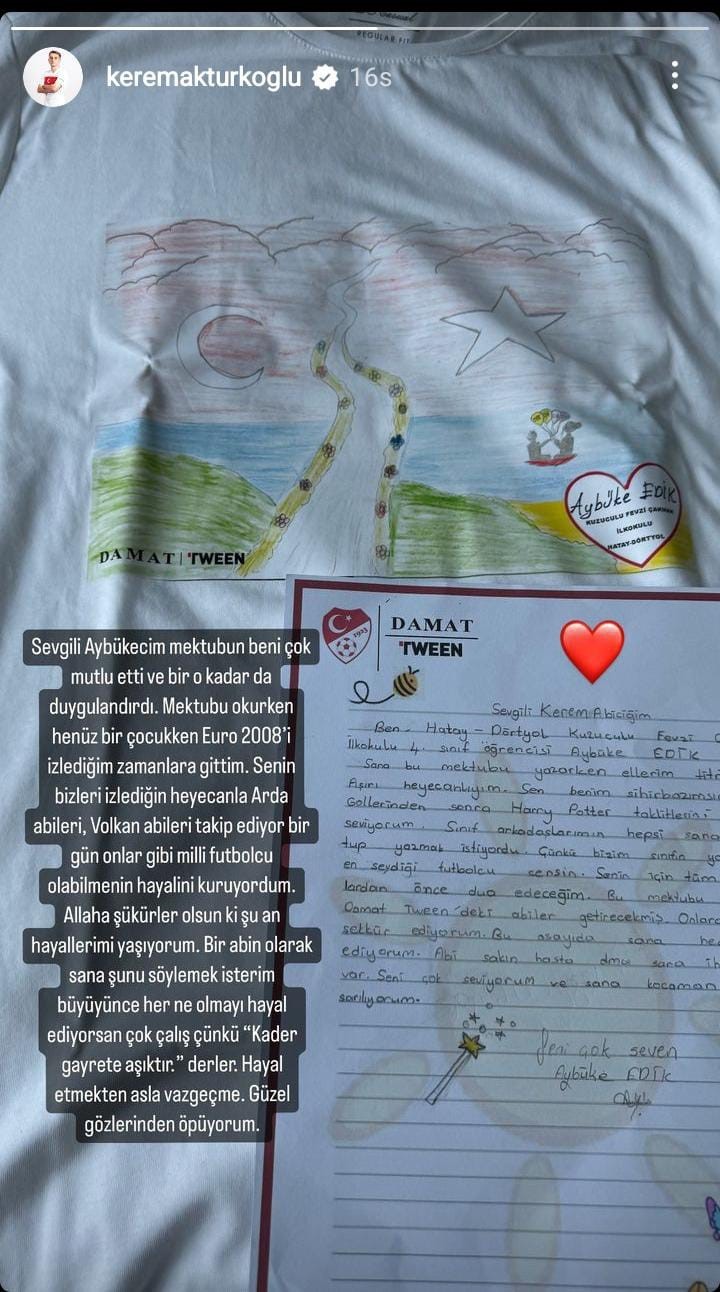 REGULAR FIT
keremakturkoglu 16s
Aybüke EDİK
KUZUCULU FEVZİ ÇAKMAK
İLKOKULU
HATAY-DÖRTYOL
DAMAT | TWEEN
1923
DAMAT
TWEEN
Sevgili Aybükecim mektubun beni çok
mutlu etti ve bir o kadar da
duygulandırdı. Mektubu okurken
henüz bir çocukken Euro 2008’i
izlediğim zamanlara gittim. Senin
bizleri izlediğin heyecanla Arda
abileri, Volkan abileri takip ediyor bir
gün onlar gibi milli futbolcu
olabilmenin hayalini kuruyordum.
Allaha şükürler olsun ki şu an
hayallerimi yaşıyorum. Bir abin olarak
sana şunu söylemek isterim
büyüyünce her ne olmayı hayal
ediyorsan çok çalış çünkü “Kader
gayrete aşıktır.” derler. Hayal
etmekten asla vazgeçme. Güzel
gözlerinden öpüyorum.
Sevgili Kerem Abiciğim
Ben Hatay - Dörtyol Kuzuculu Fevzi
İlkokulu 4. sınıf öğrencisi Aybüke EDİK
Sana bu mektubu yazarken ellerim titr
Aşırı heyecanlıyım. Sen benim sihirbazımsı
Gollerinden sonra Harry Potter taklitlerini
seviyorum. Sınıf arkadaşlarımın hepsi sana
tup yazmak istiyordu. Çünkü bizim sınıfın
en sevdiği futbolcu sensin. Senin için tüm
lardan önce dua edeceğim. Bu mektubu
Damat Tween'deki abiler getirecekmiş. Onlara
şekkür ediyorum. Bu sayıda sana
ediyorum. Abi sakın hasta olma sana ih
var. Seni çok seviyorum ve sana kocaman
sarılıyorum.
Seni çok seven
Aybüke EDİK